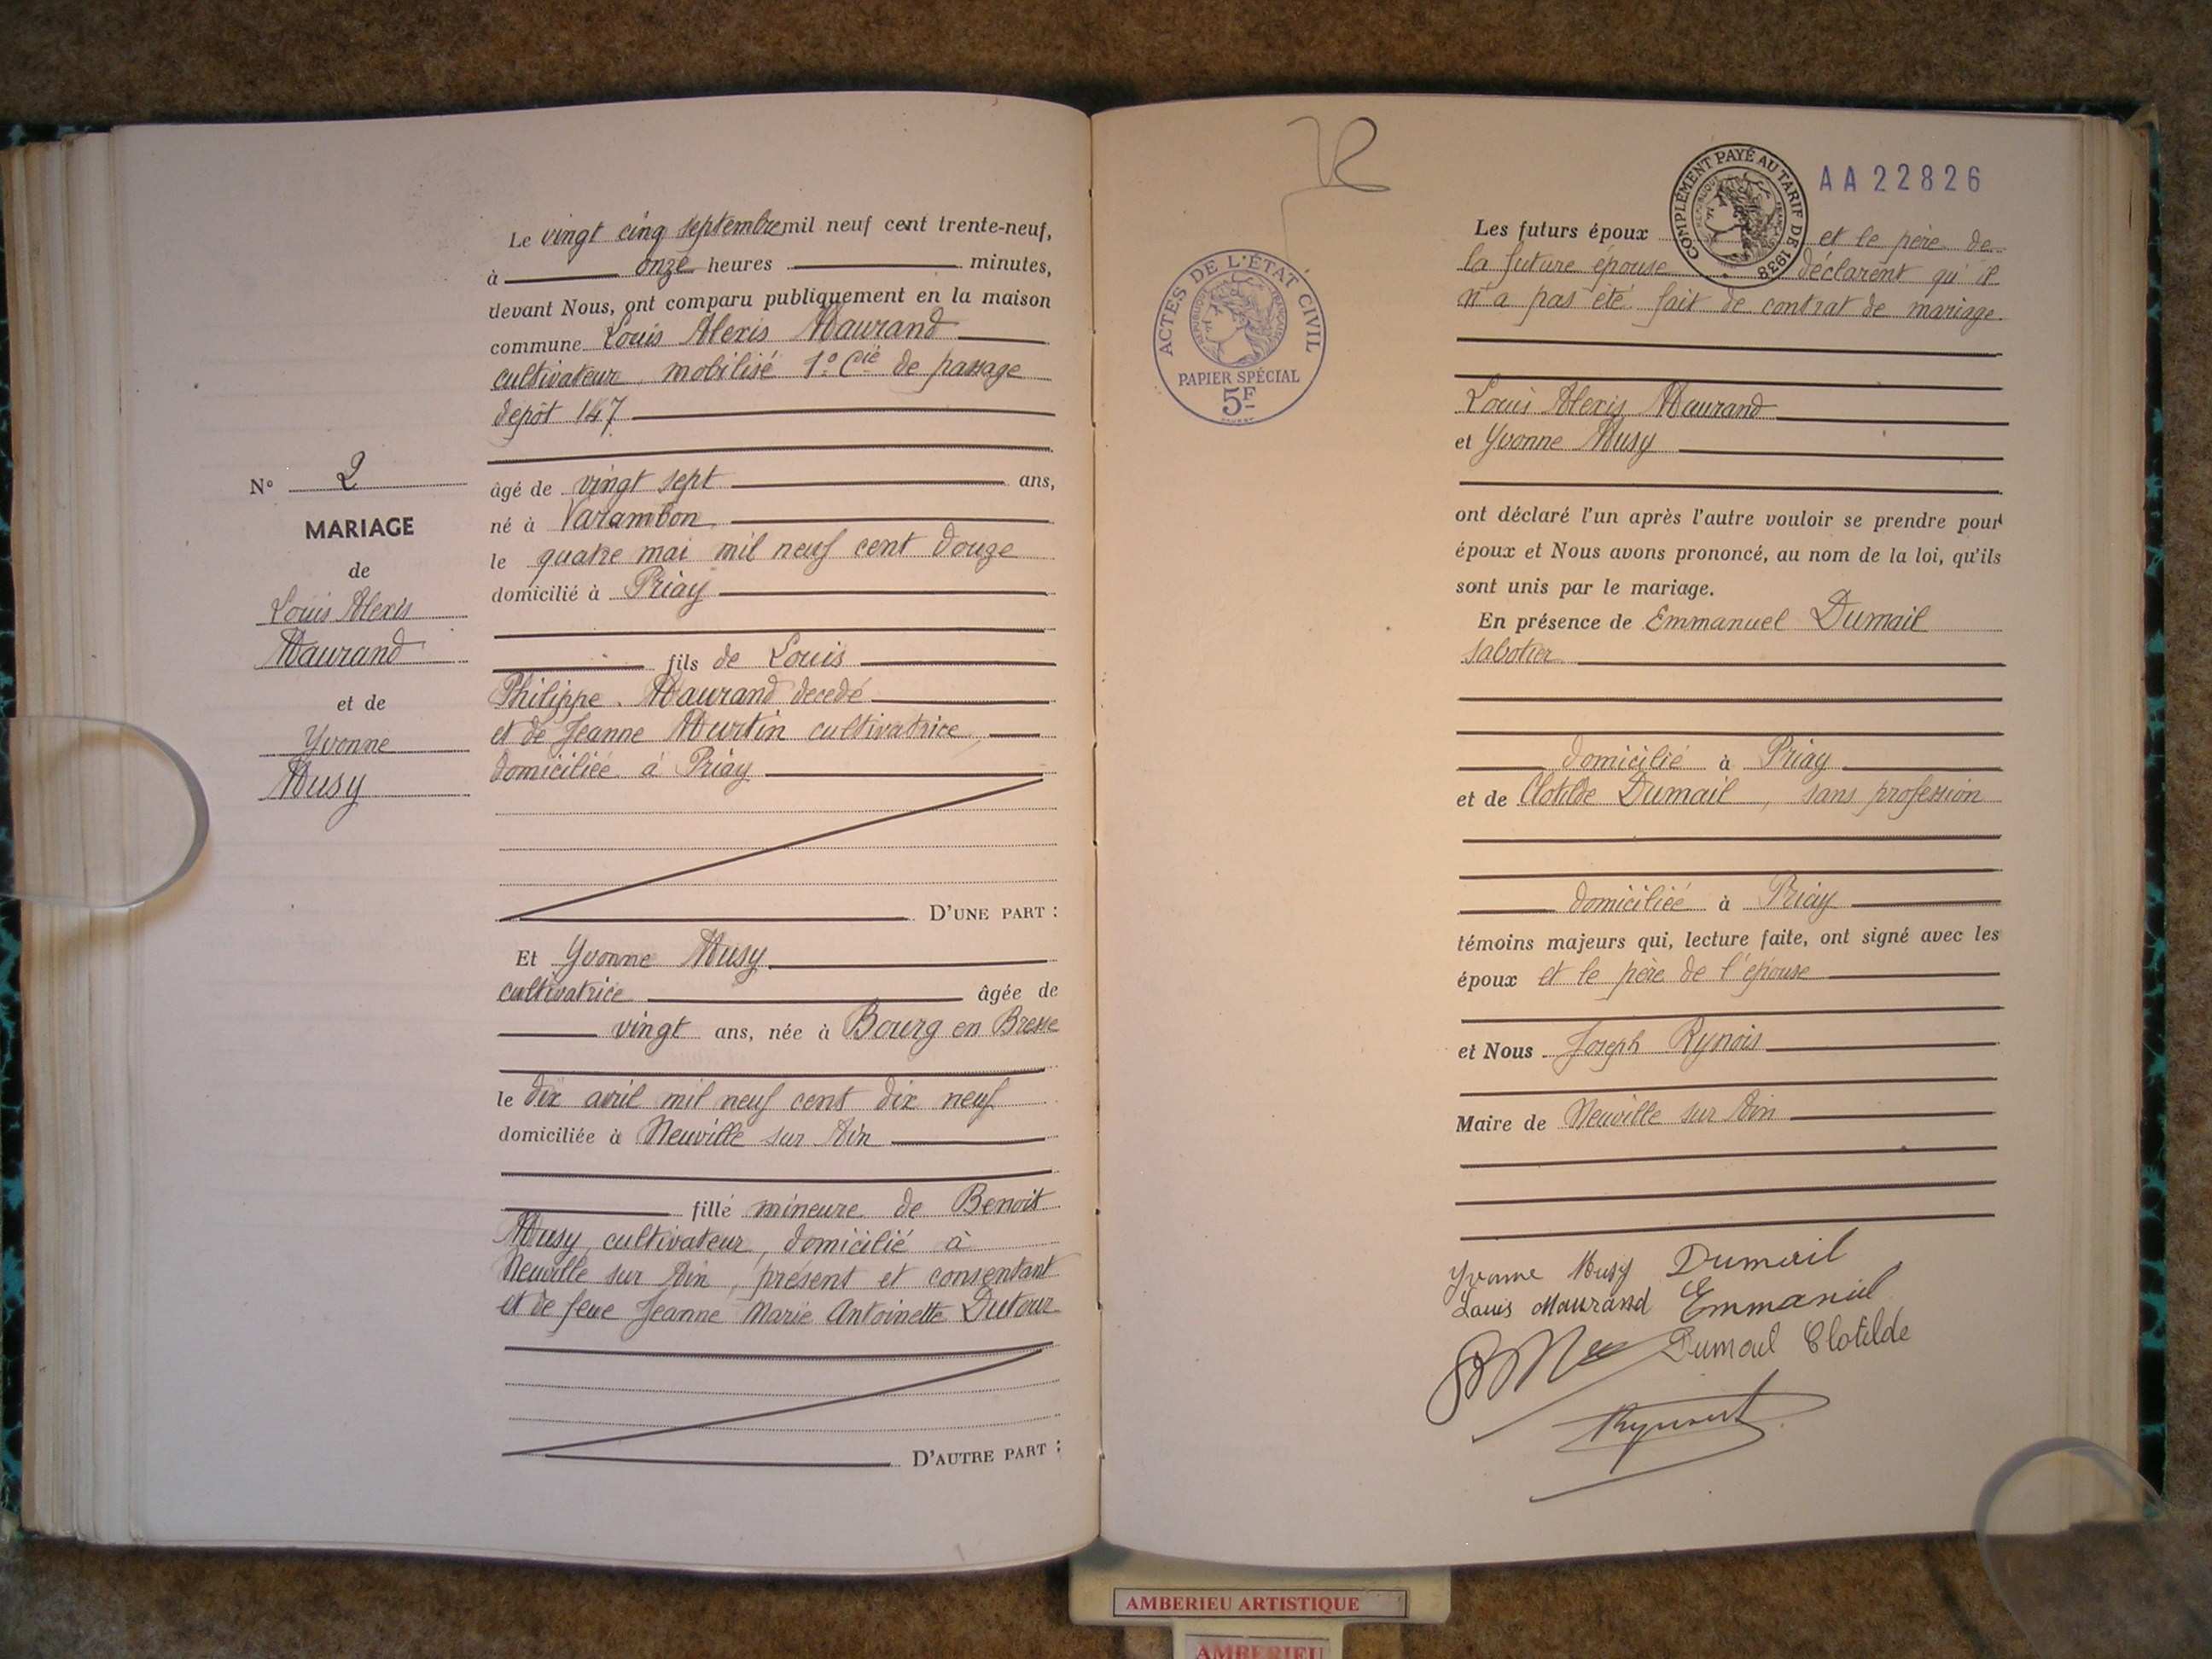 Le vingt cinq septembre mil neuf cent trente-neuf,
à onze heures minutes,
devant Nous, ont comparu publiquement en la maison
commune Louis Alexis Maurand
cultivateur, mobilisé 1º Cie de passage
dépôt 147
N° 2
MARIAGE
de
Louis Alexis
Maurand
et de
Yvonne
Musy
âgé de vingt sept ans,
né à Varambon
le quatre mai mil neuf cent douze
domicilié à Priay
fils de Louis
Philippe Maurand décédé
et de Jeanne Murtin cultivatrice,
domiciliée à Priay
D'UNE PART :
Et Yvonne Musy
cultivatrice âgée de
vingt ans, née à Bourg en Bresse
le dix avril mil neuf cent dix neuf
domiciliée à Neuville sur Ain
fille mineure de Benoit
Musy, cultivateur, domicilié à
Neuville sur Ain, présent et consentant
et de feue Jeanne Marie Antoinette Dutour
D'AUTRE PART :
ACTES DE L'ÉTAT CIVIL
RÉPUBLIQUE FRANÇAISE
PAPIER SPÉCIAL
5F
COMPLÉMENT PAYÉ AU TARIF DE 1938
RÉPUBLIQUE FRANÇAISE
AA22826
Les futurs époux et le père de
la future épouse déclarent qu'il
n'a pas été fait de contrat de mariage.
Louis Alexis Maurand
et Yvonne Musy
ont déclaré l'un après l'autre vouloir se prendre pour
époux et Nous avons prononcé, au nom de la loi, qu'ils
sont unis par le mariage.
En présence de Emmanuel Dumail
sabotier
domicilié à Priay
et de Clotilde Dumail, sans profession
domiciliée à Priay
témoins majeurs qui, lecture faite, ont signé avec les
époux et le père de l'épouse
et Nous Joseph Rynois
Maire de Neuville sur Ain
Yvonne Musy Dumail
Louis Maurand Emmanuel
Dumail Clotilde
AMBERIEU ARTISTIQUE
AMBERIEU